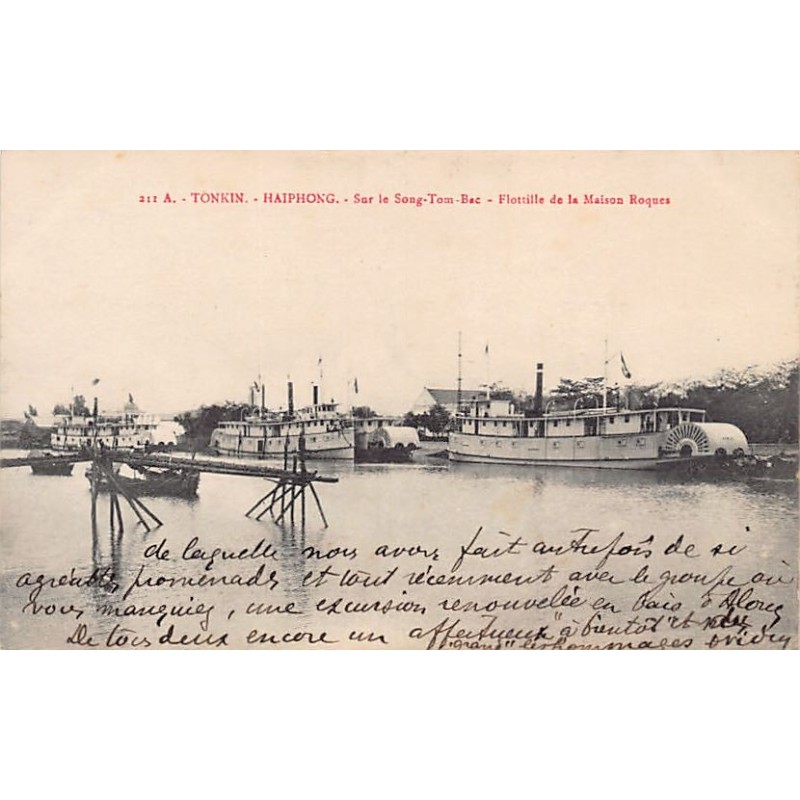 211 A. - TONKIN. - HAIPHONG. - Sur le Song-Tom-Bac - Flottille de la Maison Roques
de laquelle nous avons fait autrefois de si
agréables promenades et tout récemment avec le groupe où
vous manquiez, une excursion renouvelée en baie d'Along
De tous deux encore un affectueux "à bientôt" et
"grand" les hommages